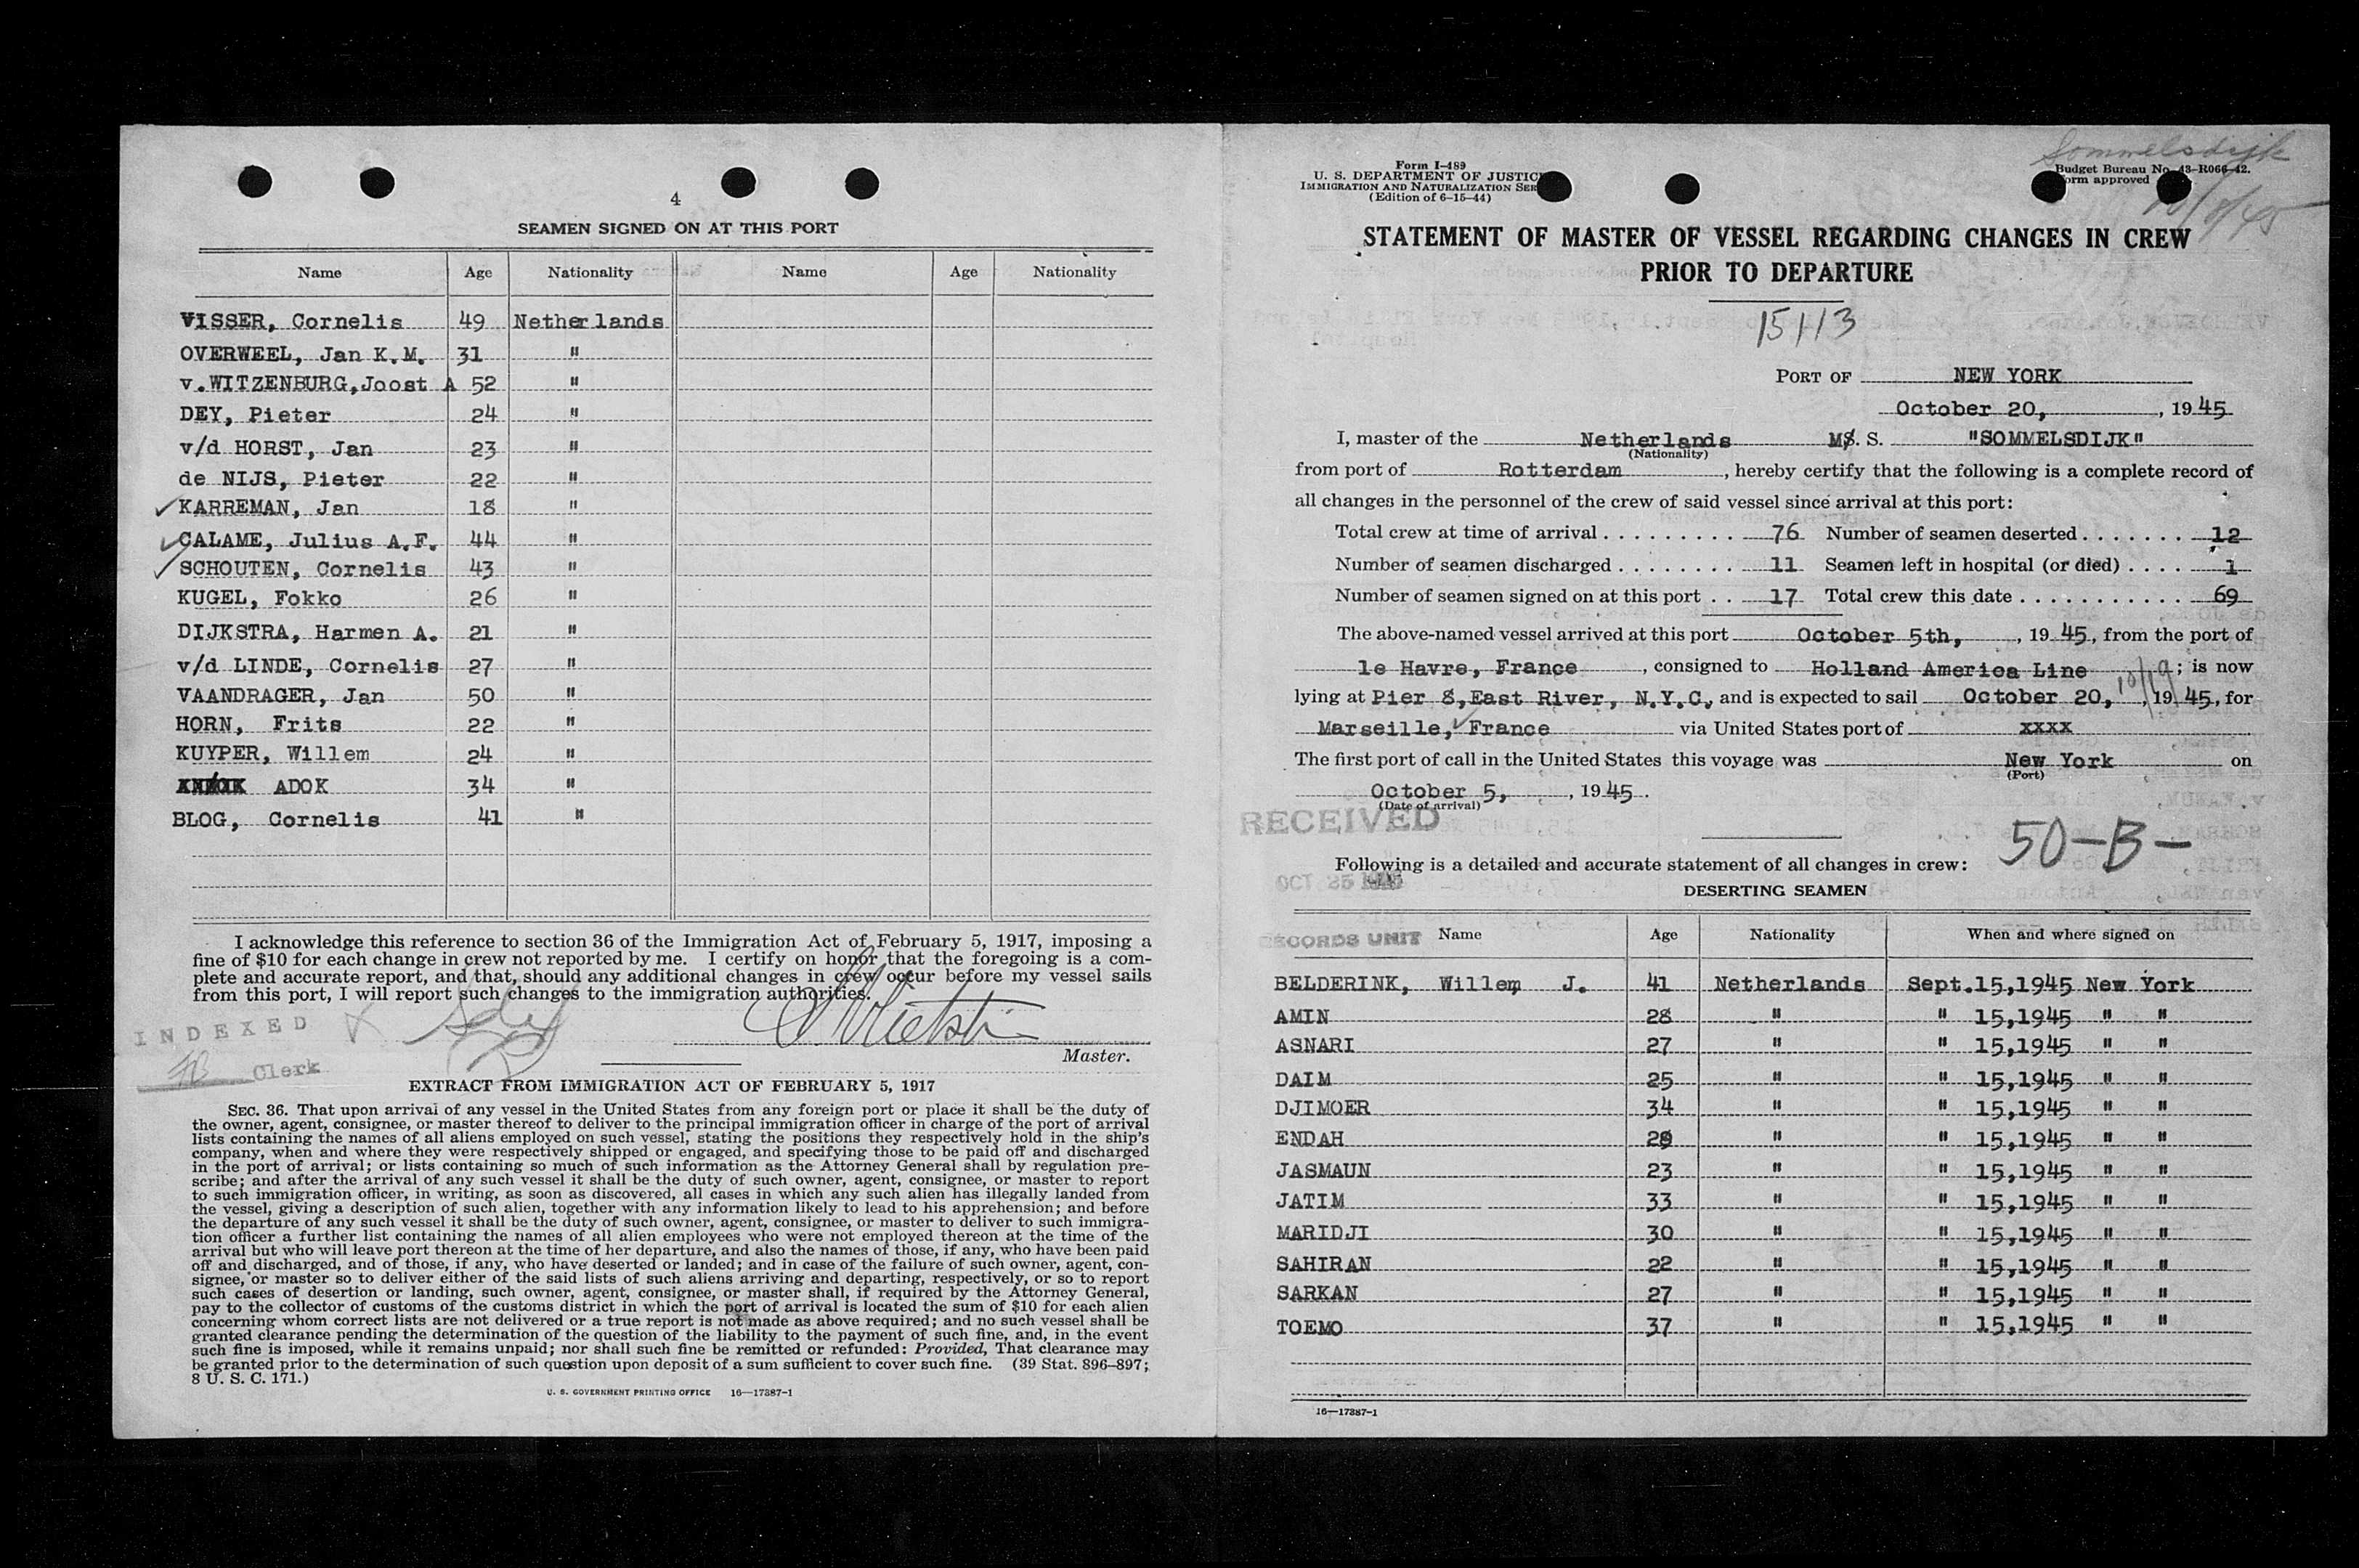 4
SEAMEN SIGNED ON AT THIS PORT
Name Age Nationality Name Age Nationality
VISSER, Cornelis 49 Netherlands
OVERWEEL, Jan K.M. 31 "
v.WITZENBURG,Joost A 52 "
DEY, Pieter 24 "
v/d HORST, Jan 23 "
de NIJS, Pieter 22 "
✓ KARREMAN, Jan 18 "
✓ CALAME, Julius A.F. 44 "
✓ SCHOUTEN, Cornelis 43 "
KUGEL, Fokko 26 "
DIJKSTRA, Harmen A. 21 "
v/d LINDE, Cornelis 27 "
VAANDRAGER, Jan 50 "
HORN, Frits 22 "
KUYPER, Willem 24 "
ADOK 34 "
BLOG, Cornelis 41 "
I acknowledge this reference to section 36 of the Immigration Act of February 5, 1917, imposing a
fine of $10 for each change in crew not reported by me. I certify on honor that the foregoing is a com-
plete and accurate report, and that, should any additional changes in crew occur before my vessel sails
from this port, I will report such changes to the immigration authorities.
INDEXED
Clerk
Master.
EXTRACT FROM IMMIGRATION ACT OF FEBRUARY 5, 1917
SEC. 36. That upon arrival of any vessel in the United States from any foreign port or place it shall be the duty of
the owner, agent, consignee, or master thereof to deliver to the principal immigration officer in charge of the port of arrival
lists containing the names of all aliens employed on such vessel, stating the positions they respectively hold in the ship's
company, when and where they were respectively shipped or engaged, and specifying those to be paid off and discharged
in the port of arrival; or lists containing so much of such information as the Attorney General shall by regulation pre-
scribe; and after the arrival of any such vessel it shall be the duty of such owner, agent, consignee, or master to report
to such immigration officer, in writing, as soon as discovered, all cases in which any such alien has illegally landed from
the vessel, giving a description of such alien, together with any information likely to lead to his apprehension; and before
the departure of any such vessel it shall be the duty of such owner, agent, consignee, or master to deliver to such immigra-
tion officer a further list containing the names of all alien employees who were not employed thereon at the time of the
arrival but who will leave port thereon at the time of her departure, and also the names of those, if any, who have been paid
off and discharged, and of those, if any, who have deserted or landed; and in case of the failure of such owner, agent, con-
signee, or master so to deliver either of the said lists of such aliens arriving and departing, respectively, or so to report
such cases of desertion or landing, such owner, agent, consignee, or master shall, if required by the Attorney General,
pay to the collector of customs of the customs district in which the port of arrival is located the sum of $10 for each alien
concerning whom correct lists are not delivered or a true report is not made as above required; and no such vessel shall be
granted clearance pending the determination of the question of the liability to the payment of such fine, and, in the event
such fine is imposed, while it remains unpaid; nor shall such fine be remitted or refunded: Provided, That clearance may
be granted prior to the determination of such question upon deposit of a sum sufficient to cover such fine. (39 Stat. 896-897;
8 U. S. C. 171.)
U. S. GOVERNMENT PRINTING OFFICE 16—17387-1
Sommelsdijk
Form I-489
U. S. DEPARTMENT OF JUSTICE
IMMIGRATION AND NATURALIZATION SER
(Edition of 6-15-44)
Budget Bureau No. 43-R066-42.
orm approved
STATEMENT OF MASTER OF VESSEL REGARDING CHANGES IN CREW
PRIOR TO DEPARTURE
15113
PORT OF NEW YORK
October 20, , 19 45
I, master of the Netherlands M. S. "SOMMELSDIJK"
(Nationality)
from port of Rotterdam , hereby certify that the following is a complete record of
all changes in the personnel of the crew of said vessel since arrival at this port:
Total crew at time of arrival . . . . . . . . . 76 Number of seamen deserted . . . . . . . 12
Number of seamen discharged . . . . . . . . 11 Seamen left in hospital (or died) . . . . 1
Number of seamen signed on at this port . . 17 Total crew this date . . . . . . . . . . . 69
The above-named vessel arrived at this port October 5th, , 19 45, from the port of
le Havre, France , consigned to Holland America Line ; is now
10/19
lying at Pier 8, East River, N.Y.C, and is expected to sail October 20, , 19 45, for
Marseille, ✓ France via United States port of xxxx
The first port of call in the United States this voyage was New York on
(Port)
October 5, , 19 45.
(Date of arrival)
RECEIVED
50-B-
Following is a detailed and accurate statement of all changes in crew:
OCT 25 1945
DESERTING SEAMEN
RECORDS UNIT
Name Age Nationality When and where signed on
BELDERINK, Willem J. 41 Netherlands Sept.15,1945 New York
AMIN 28 " " 15,1945 " "
ASNARI 27 " " 15,1945 " "
DAIM 25 " " 15,1945 " "
DJIMOER 34 " " 15,1945 " "
ENDAH " " 15,1945 " "
JASMAUN 23 " " 15,1945 " "
JATIM 33 " " 15,1945 " "
MARIDJI 30 " " 15,1945 " "
SAHIRAN 22 " " 15,1945 " "
SARKAN 27 " " 15,1945 " "
TOEMO 37 " " 15,1945 " "
16—17387-1